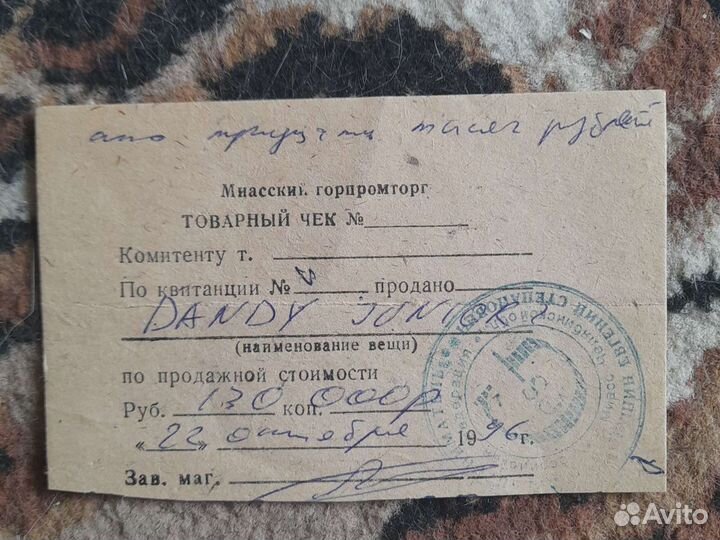 сто тридцать тысяч рублей
Миасский горпромторг
ТОВАРНЫЙ ЧЕК №
Комитенту т.
По квитанции № продано
DANDY JUNIOR
(наименование вещи)
по продажной стоимости
Руб. 130 коп. 000р
„22" октября 1996 г.
Зав. маг.
ЕВГЕНИЙ СТЕПАНОВИЧ
Avito